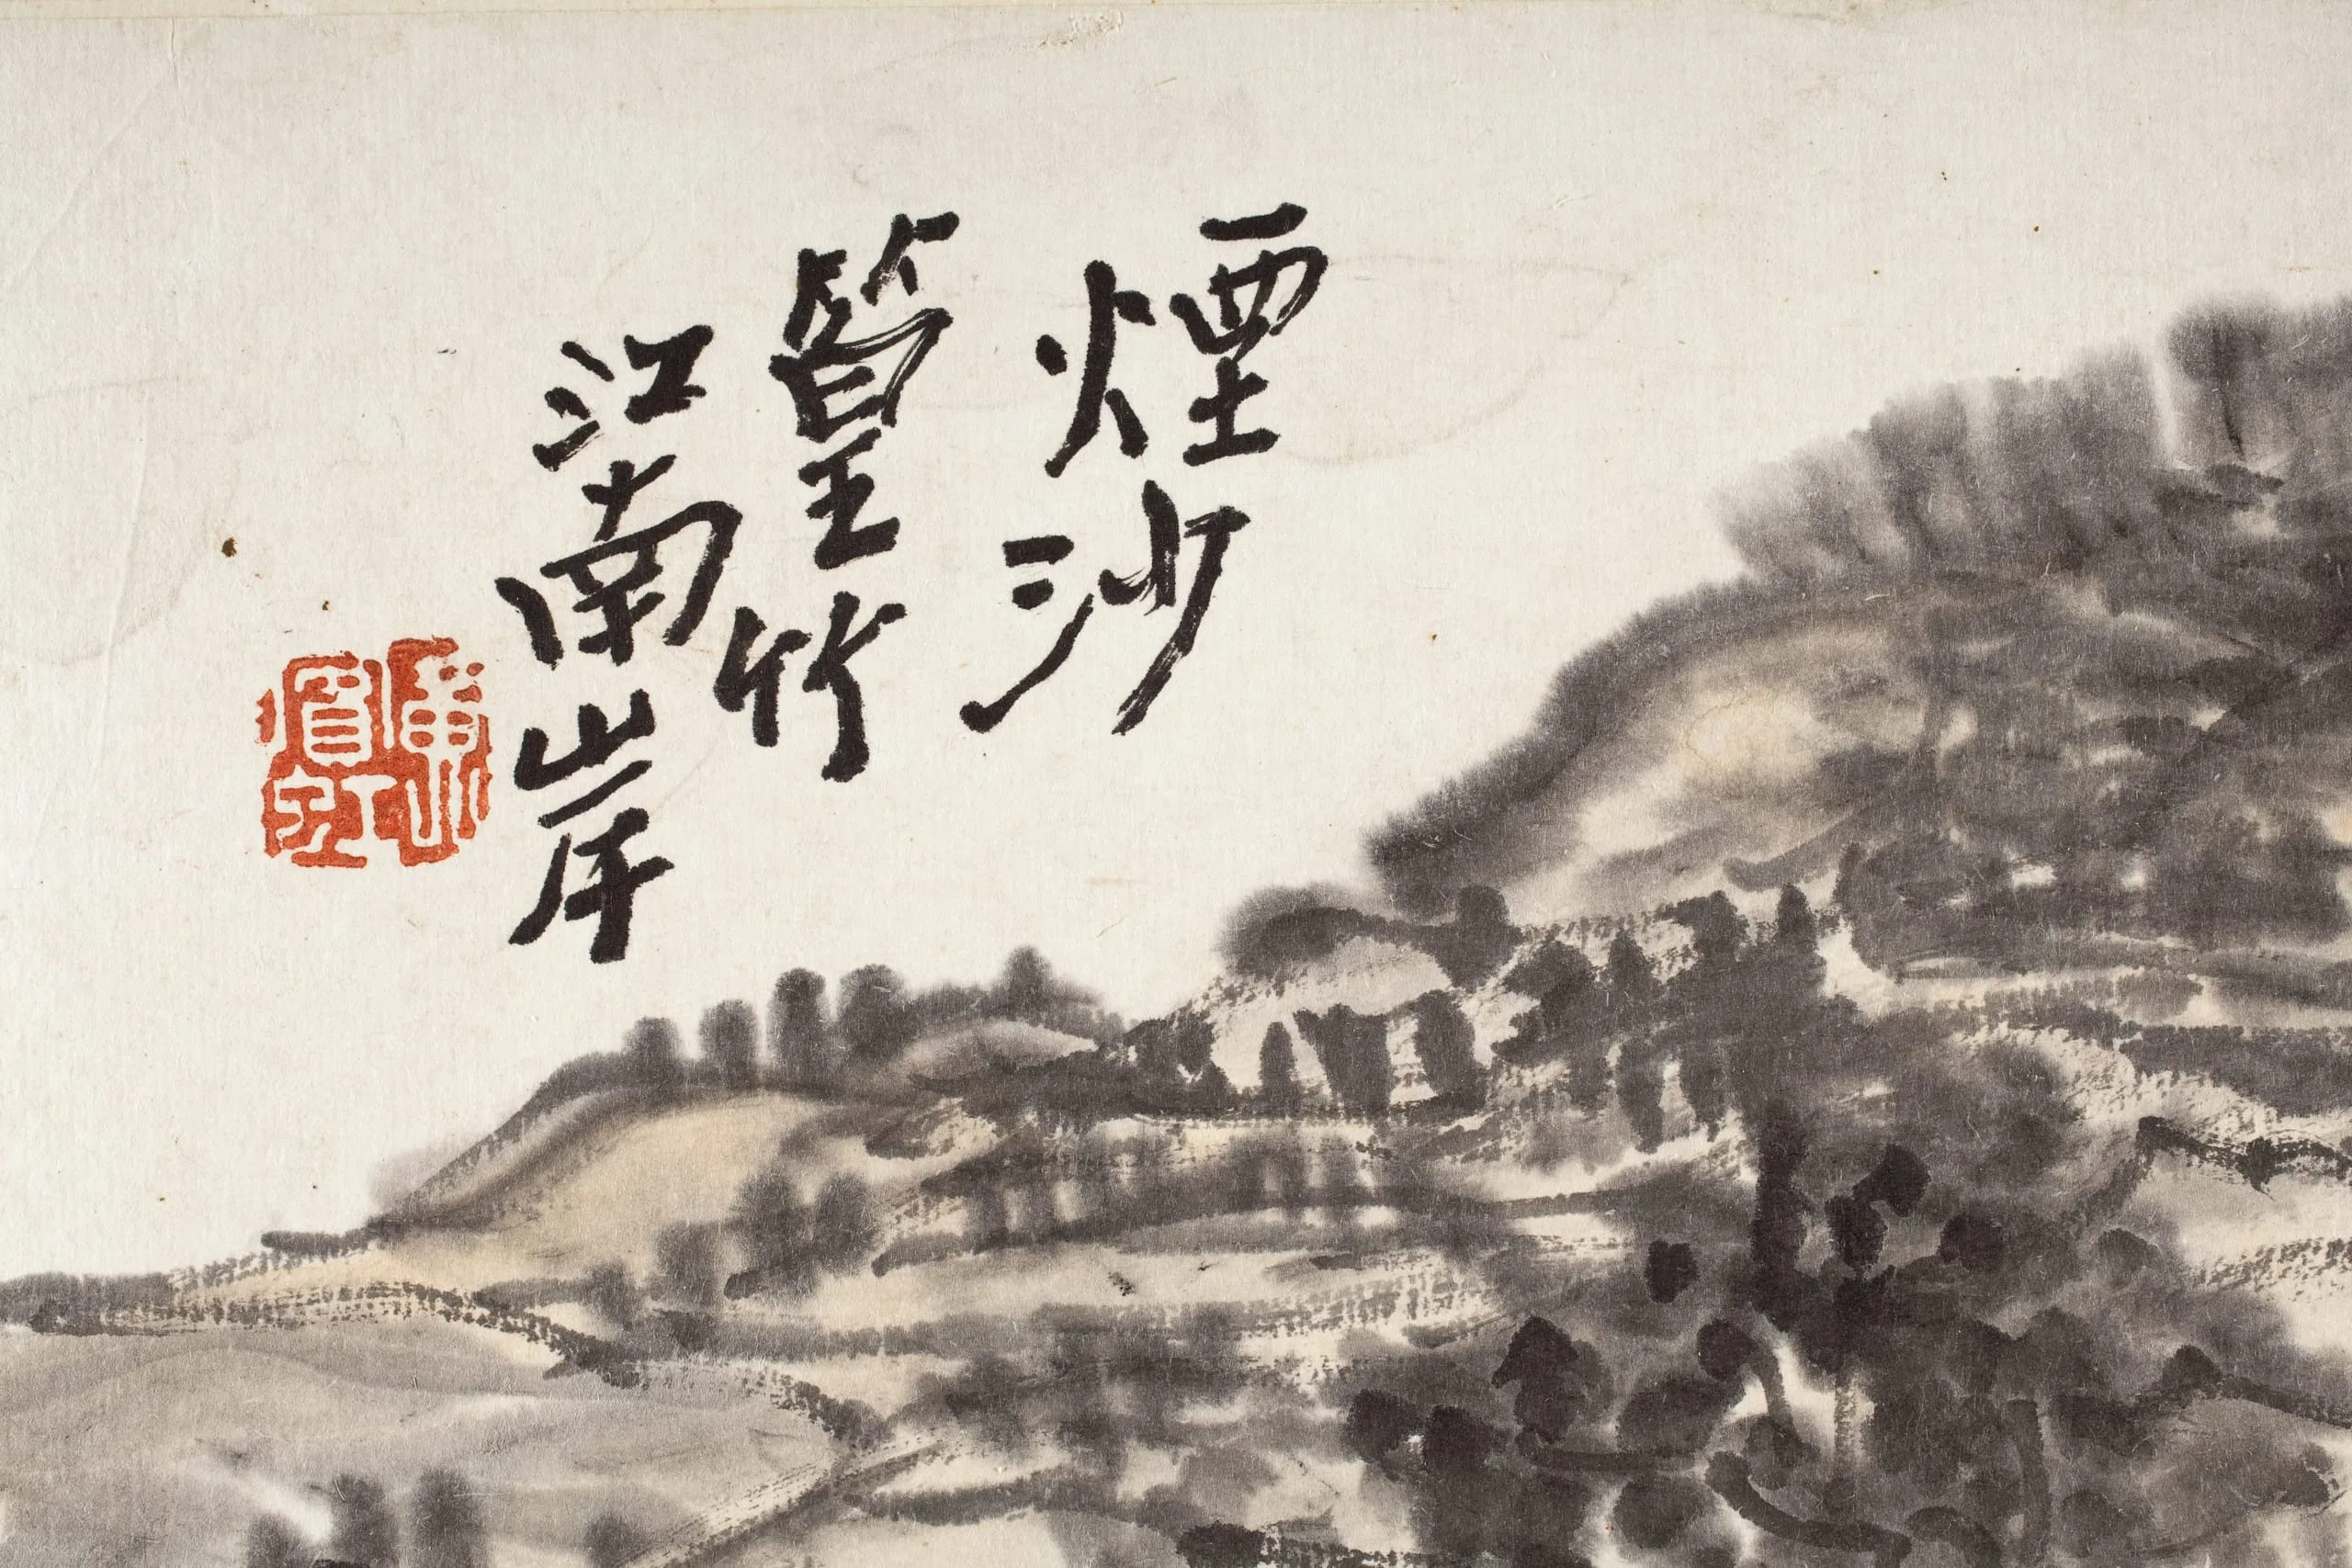 煙沙
篁竹
江南岸